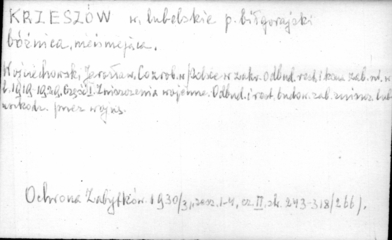 KRZESZÓW w. lubelskie p. biłgorajski
bóźnica, nieistniejąca.
Wojciechowski, Jarosław. Co zrob. w Polsce w zakr. odbud. rest. i kons. zab. nt. w
l. 1919-1929. Część I. Zniszczenia wojenne. Odbud. i rest. budow. zab. zniszcz. lub
uszkodz. przez wojnę.
Ochrona Zabytków. 1930/31, zesz. 1-4, cz. II, str. 243-318 (266).